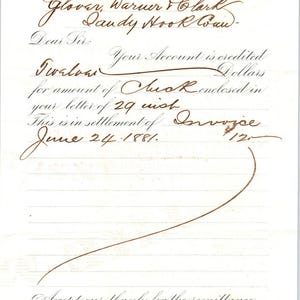 Glover, Warner & Clark
Sandy Hook Conn.
Dear Sir:
Your Account is credited
Twelve Dollars
for amount of Check enclosed in
your letter of 29 inst
This is in settlement of Invoice
June 24 1881. $12—
Accept our thanks for the remittance